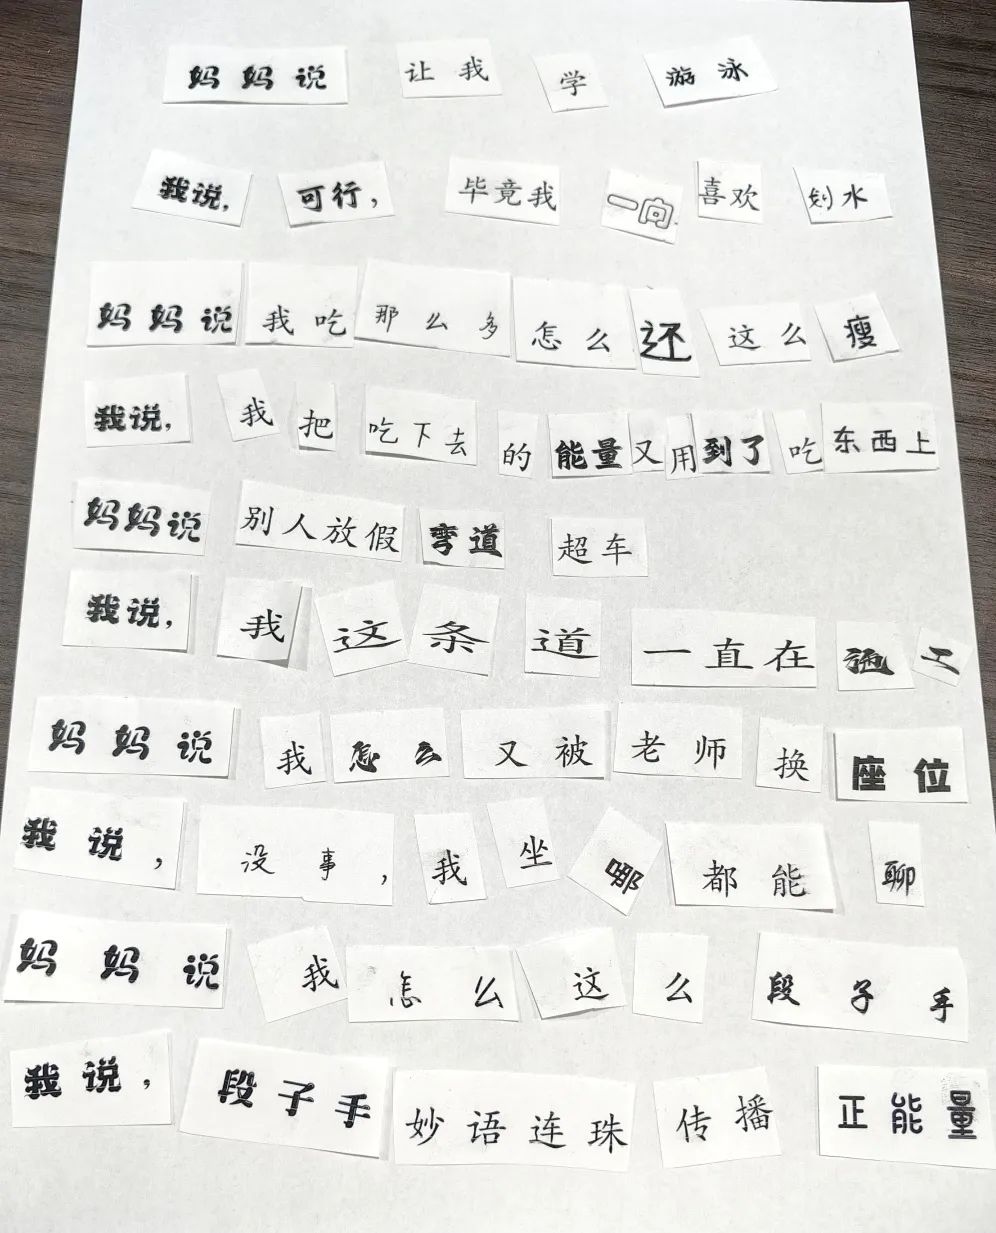 妈妈说 让我 学 游泳
我说, 可行, 毕竟我 一向 喜欢 划水
妈妈说 我吃 那么多 怎么 还 这么 瘦
我说, 我 把 吃下去 的 能量 又 用 到了 吃 东西上
妈妈说 别人放假 弯道 超车
我说, 我 这 条 道 一直在 施 工
妈妈说 我 怎么 又被 老师 换 座位
我说, 没事, 我 坐 哪 都能 聊
妈妈说 我 怎么 这 么 段子手
我说, 段子手 妙语连珠 传播 正能量